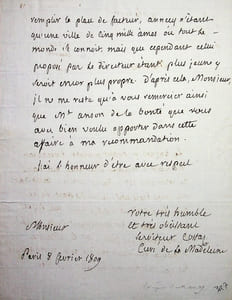 remplir la place de facteur, annecy n'étant
qu'une ville de cinq mille ames ou tout le
monde se connoit mais que cependant celui
proposé par le directeur étant plus jeune y
seroit encor plus propre. D'après cela, Monsieur,
il ne me reste qu'a vous remercier ainsi
que Mr anson de la bonté que vous
avez bien voulu apporter dans cette
affaire a ma recommandation.
J'ai l'honneur d'être avec respect
Monsieur
votre très humble
et très obéissant
serviteur Costaz
Curé de la Madeleine
Paris 8 fevrier 1809